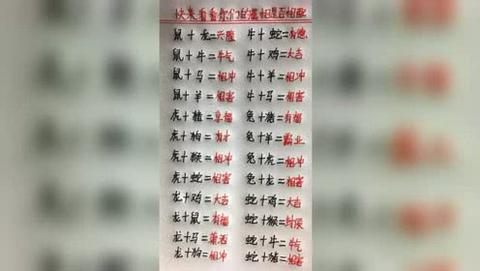 快来看看你们的属相是否相配
鼠+龙=天隆 牛+蛇=有隆
鼠+牛=牛气 牛+鸡=大吉
鼠+马=相冲 牛+羊=相冲
鼠+羊=相害 牛+马=相害
虎+猪=享福 兔+猪=有福
虎+狗=有才 兔+羊=霸业
虎+猴=相冲 兔+虎=相冲
虎+蛇=相害 兔+龙=相害
龙+鸡=大吉 蛇+鸡=大吉
龙+鼠=有福 蛇+猴=封侯
龙+马=潇洒 蛇+牛=牛气
龙+狗=相冲 蛇+猪=相害